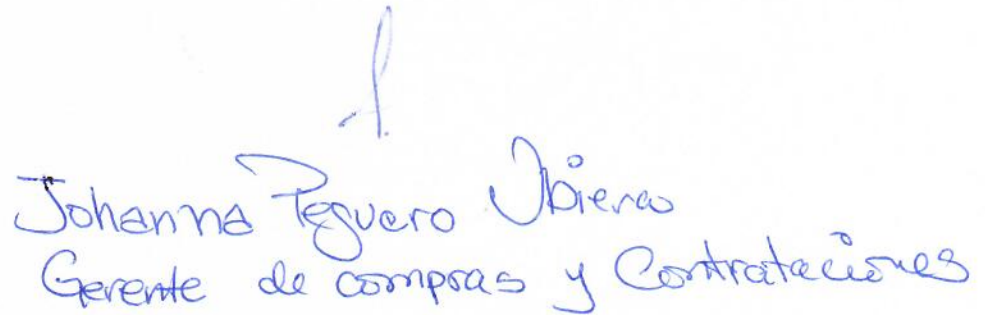 Johanna Peguero Ubiera
Gerente de compras y Contrataciones